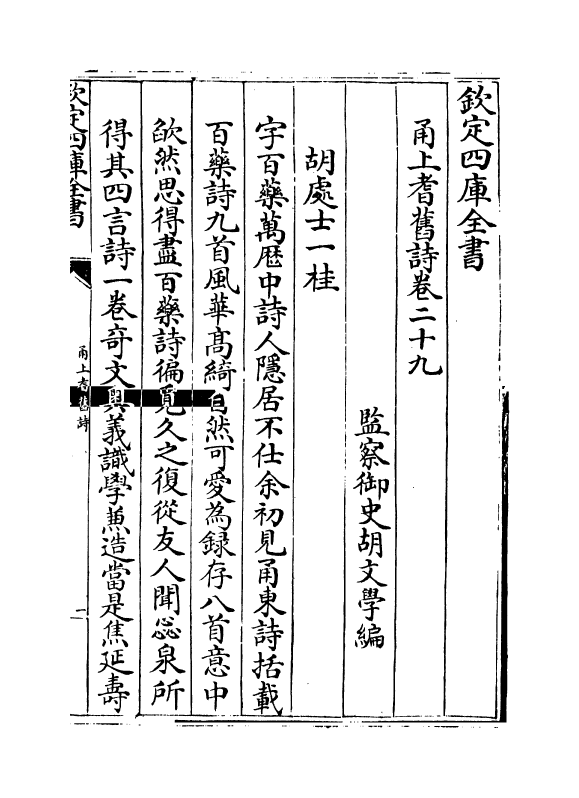 欽定四庫全書
甬上耆舊詩卷二十九
監察御史胡文學編
胡處士一桂
字百藥萬厯中詩人隱居不仕余初見甬東詩括載
百藥詩九首風華髙綺自然可愛為録存八首意中
欿然思得盡百藥詩徧覓久之復從友人聞蕊泉所
得其四言詩一卷奇文奥義識學兼造當是焦延壽
欽定四庫全書
甬上耆舊詩